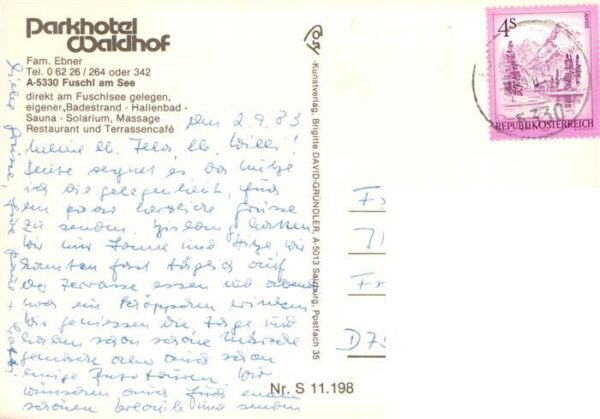 Parkhotel
Waldhof
Fam. Ebner
Tel. 0 62 26 / 264 oder 342
A-5330 Fuschl am See
direkt am Fuschlsee gelegen,
eigener Badestrand - Hallenbad -
Sauna - Solarium, Massage
Restaurant und Terrassencafé
den 2.9.83
Meine lb. lb. Willi!
Heute regnet es. Da nütze
ich die gelegenheit, für
ein paar herzliche grüsse
zu senden. Bislang hatten
wir nur Sonne und Hitze wir
konnten fast täglich auf
der Terrasse essen und abends
noch ein trinken
Wir geniessen die Tage und
haben schon schöne Märsche
gemacht aber auch schon
einige Wir
wünschen auch für euch
schönen und senden
liebe grüsse,
Kunstverlag, Brigitte DAVID-GRÜNDLER, A-5013 Salzburg, Postfach 35
Nr. S 11.198
4S
REPUBLIK ÖSTERREICH
5330
D 75